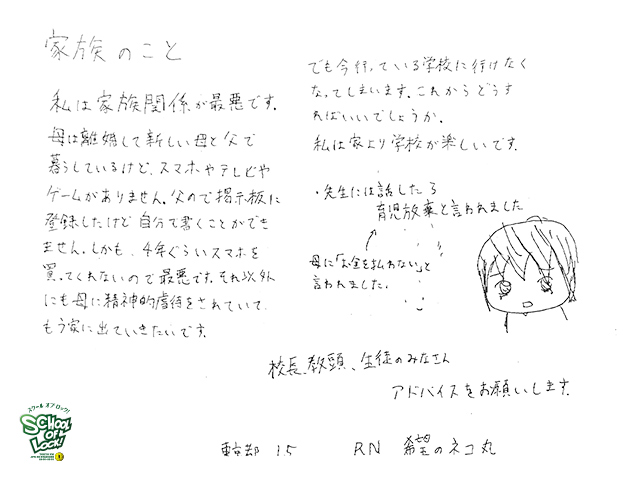 家族のこと
私は家族関係が最悪です。
母は離婚して新しい母と父で
暮らしているけど、スマホやテレビや
ゲームがありません。父ので掲示板に
登録したけど自分で書くことができ
ません。しかも、4年ぐらいスマホを
買ってくれないので最悪です。それ以外
にも母に精神的虐待をされていて、
もう家に出ていきたいです。
でも今行っている学校に行けなく
なってしまいます。これからどうす
ればいいでしょうか。
私は家より学校が楽しいです。
・先生には話したら
育児放棄と言われました
母に「お金を払わない」と
言われました。
校長、教頭、生徒のみなさん
アドバイスをお願いします。
スクール オブ ロック!
SCHOOL
OF
LOCK!
東京都 15 RN 希望のネコ丸